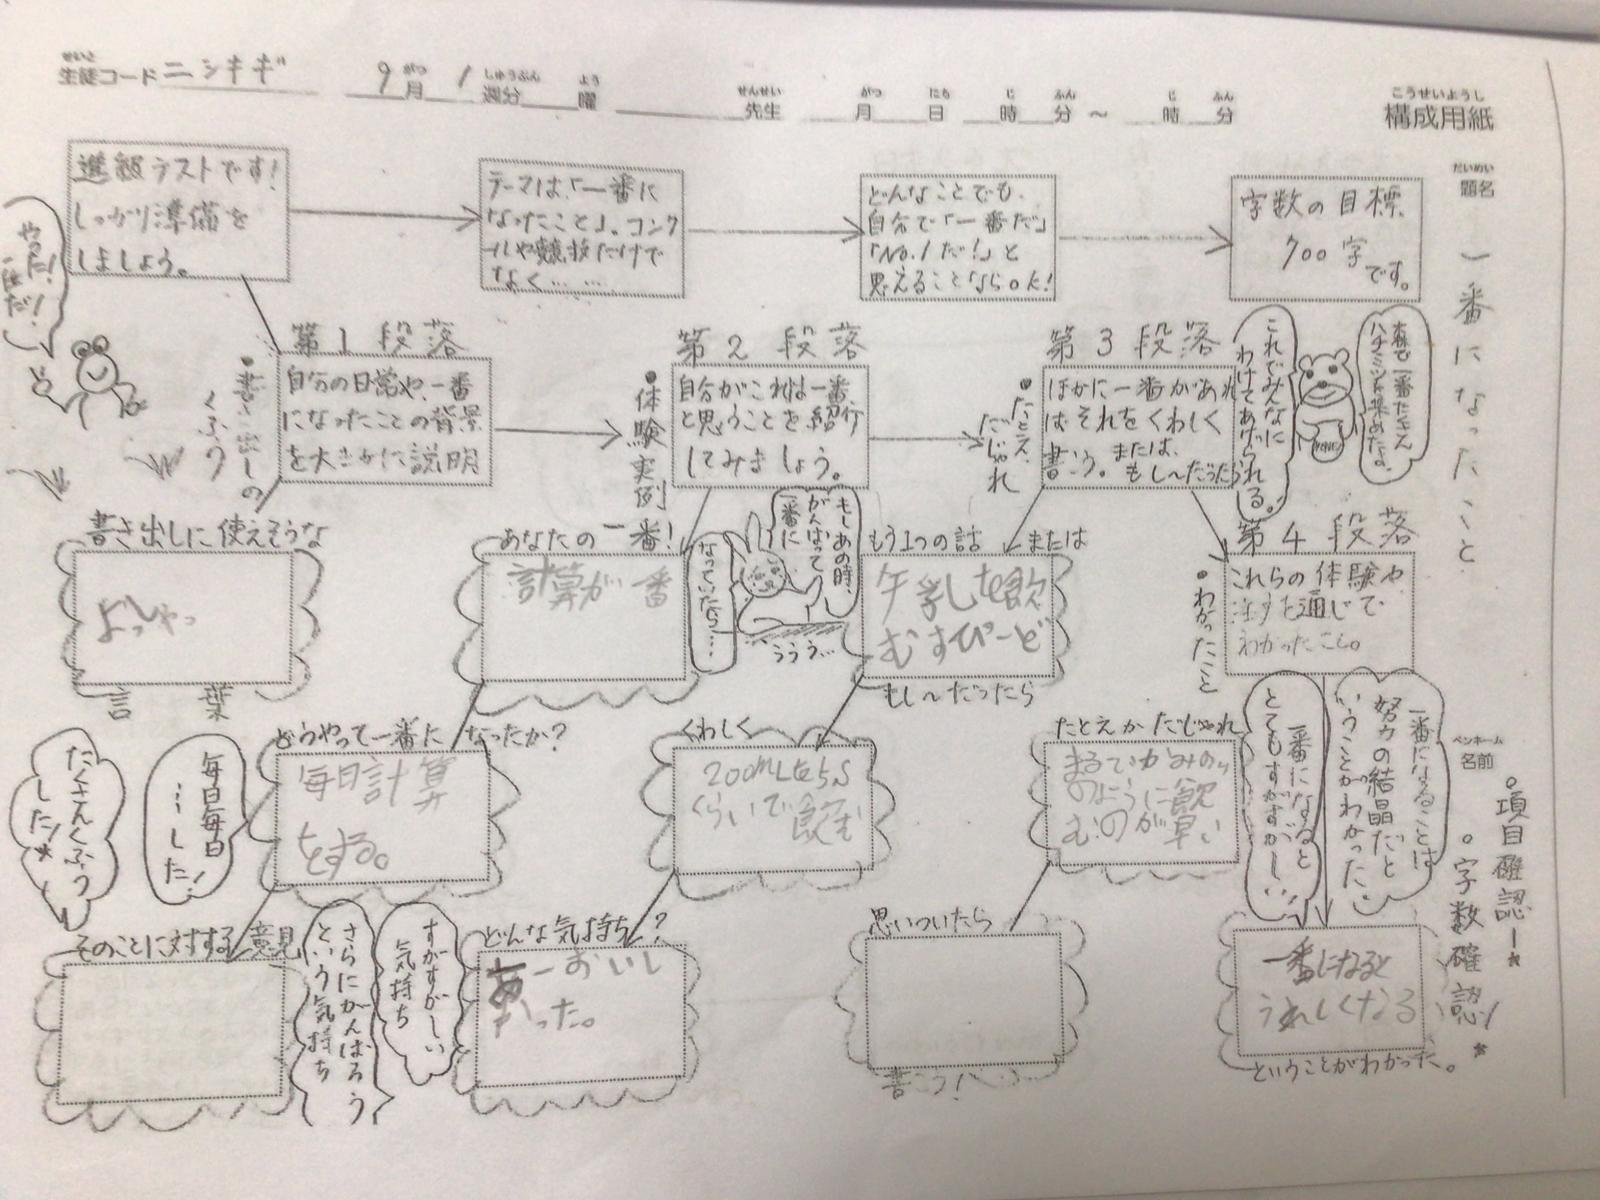 せいと
生徒コード ニシキギ
9月 1週分 曜
がつ しゅうぶん よう
先生 月 日 時 分 ～ 時 分
せんせい がつ にち じ ふん じ ふん
こうせいようし
構成用紙
だいめい
題名
一番になったこと
進級テストです!
しっかり準備を
しましょう。
テーマは、「一番に
なったこと」。コンク
ールや競技だけで
なく……
どんなことでも、
自分で「一番だ」
「No.1だ!」と
思えることならOK!
字数の目標
700字
です。
やった!
一番だ!
●書き出しの
くふう
第1段落
自分の日常や、一番
になったことの背景
を大まかに説明
●体験実例
第2段落
自分がこれは一番
と思うことを紹介
してみましょう。
●たとえ、
だじゃれ
第3段落
ほかに一番があれ
ばそれをくわしく
書こう。または、
もし～だったら
森で一番たくさん
ハチミツを集めたよ。
これでみんなに
わけてあげられる。
書き出しに使えそうな
よっしゃっ
言葉
あなたの一番!
計算が一番
もしあの時、
がんばって
一番に
なっていたら…
ううう…
もう1つの話 または
牛乳を飲
むすぴーど
もし～だったら
第4段落
●わかったこと
これらの体験や
話を通じて
わかったこと。
たくさんくふう
した!
毎日毎日
…した!
どうやって一番になったか?
毎日計算
をする。
くわしく
200mLを5s
くらいで飲む
たとえかだじゃれ
まるでかみの
のように飲
むのが早い
一番になると
とてもすがすがしい!
一番になることは
努力の結晶だと
いうことがわかった。
ペンネーム
名前
○項目確認!
○字数確認!
そのことに対する意見
さらにがんばろう
という気持ち
すがすがしい
気持ち
どんな気持ち?
あーおいし
かった。
思いついたら
書こう!
一番になると
うれしくなる
ということがわかった。